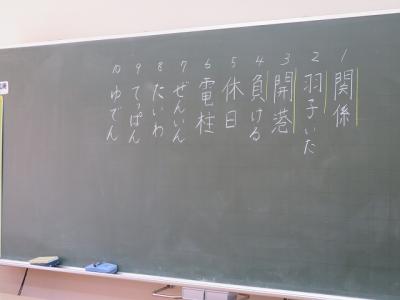 1 関係
2 羽子いた
3 開港
4 負ける
5 休日
6 電柱
7 ぜんいん
8 たいわ
9 てっぱん
10 ゆでん